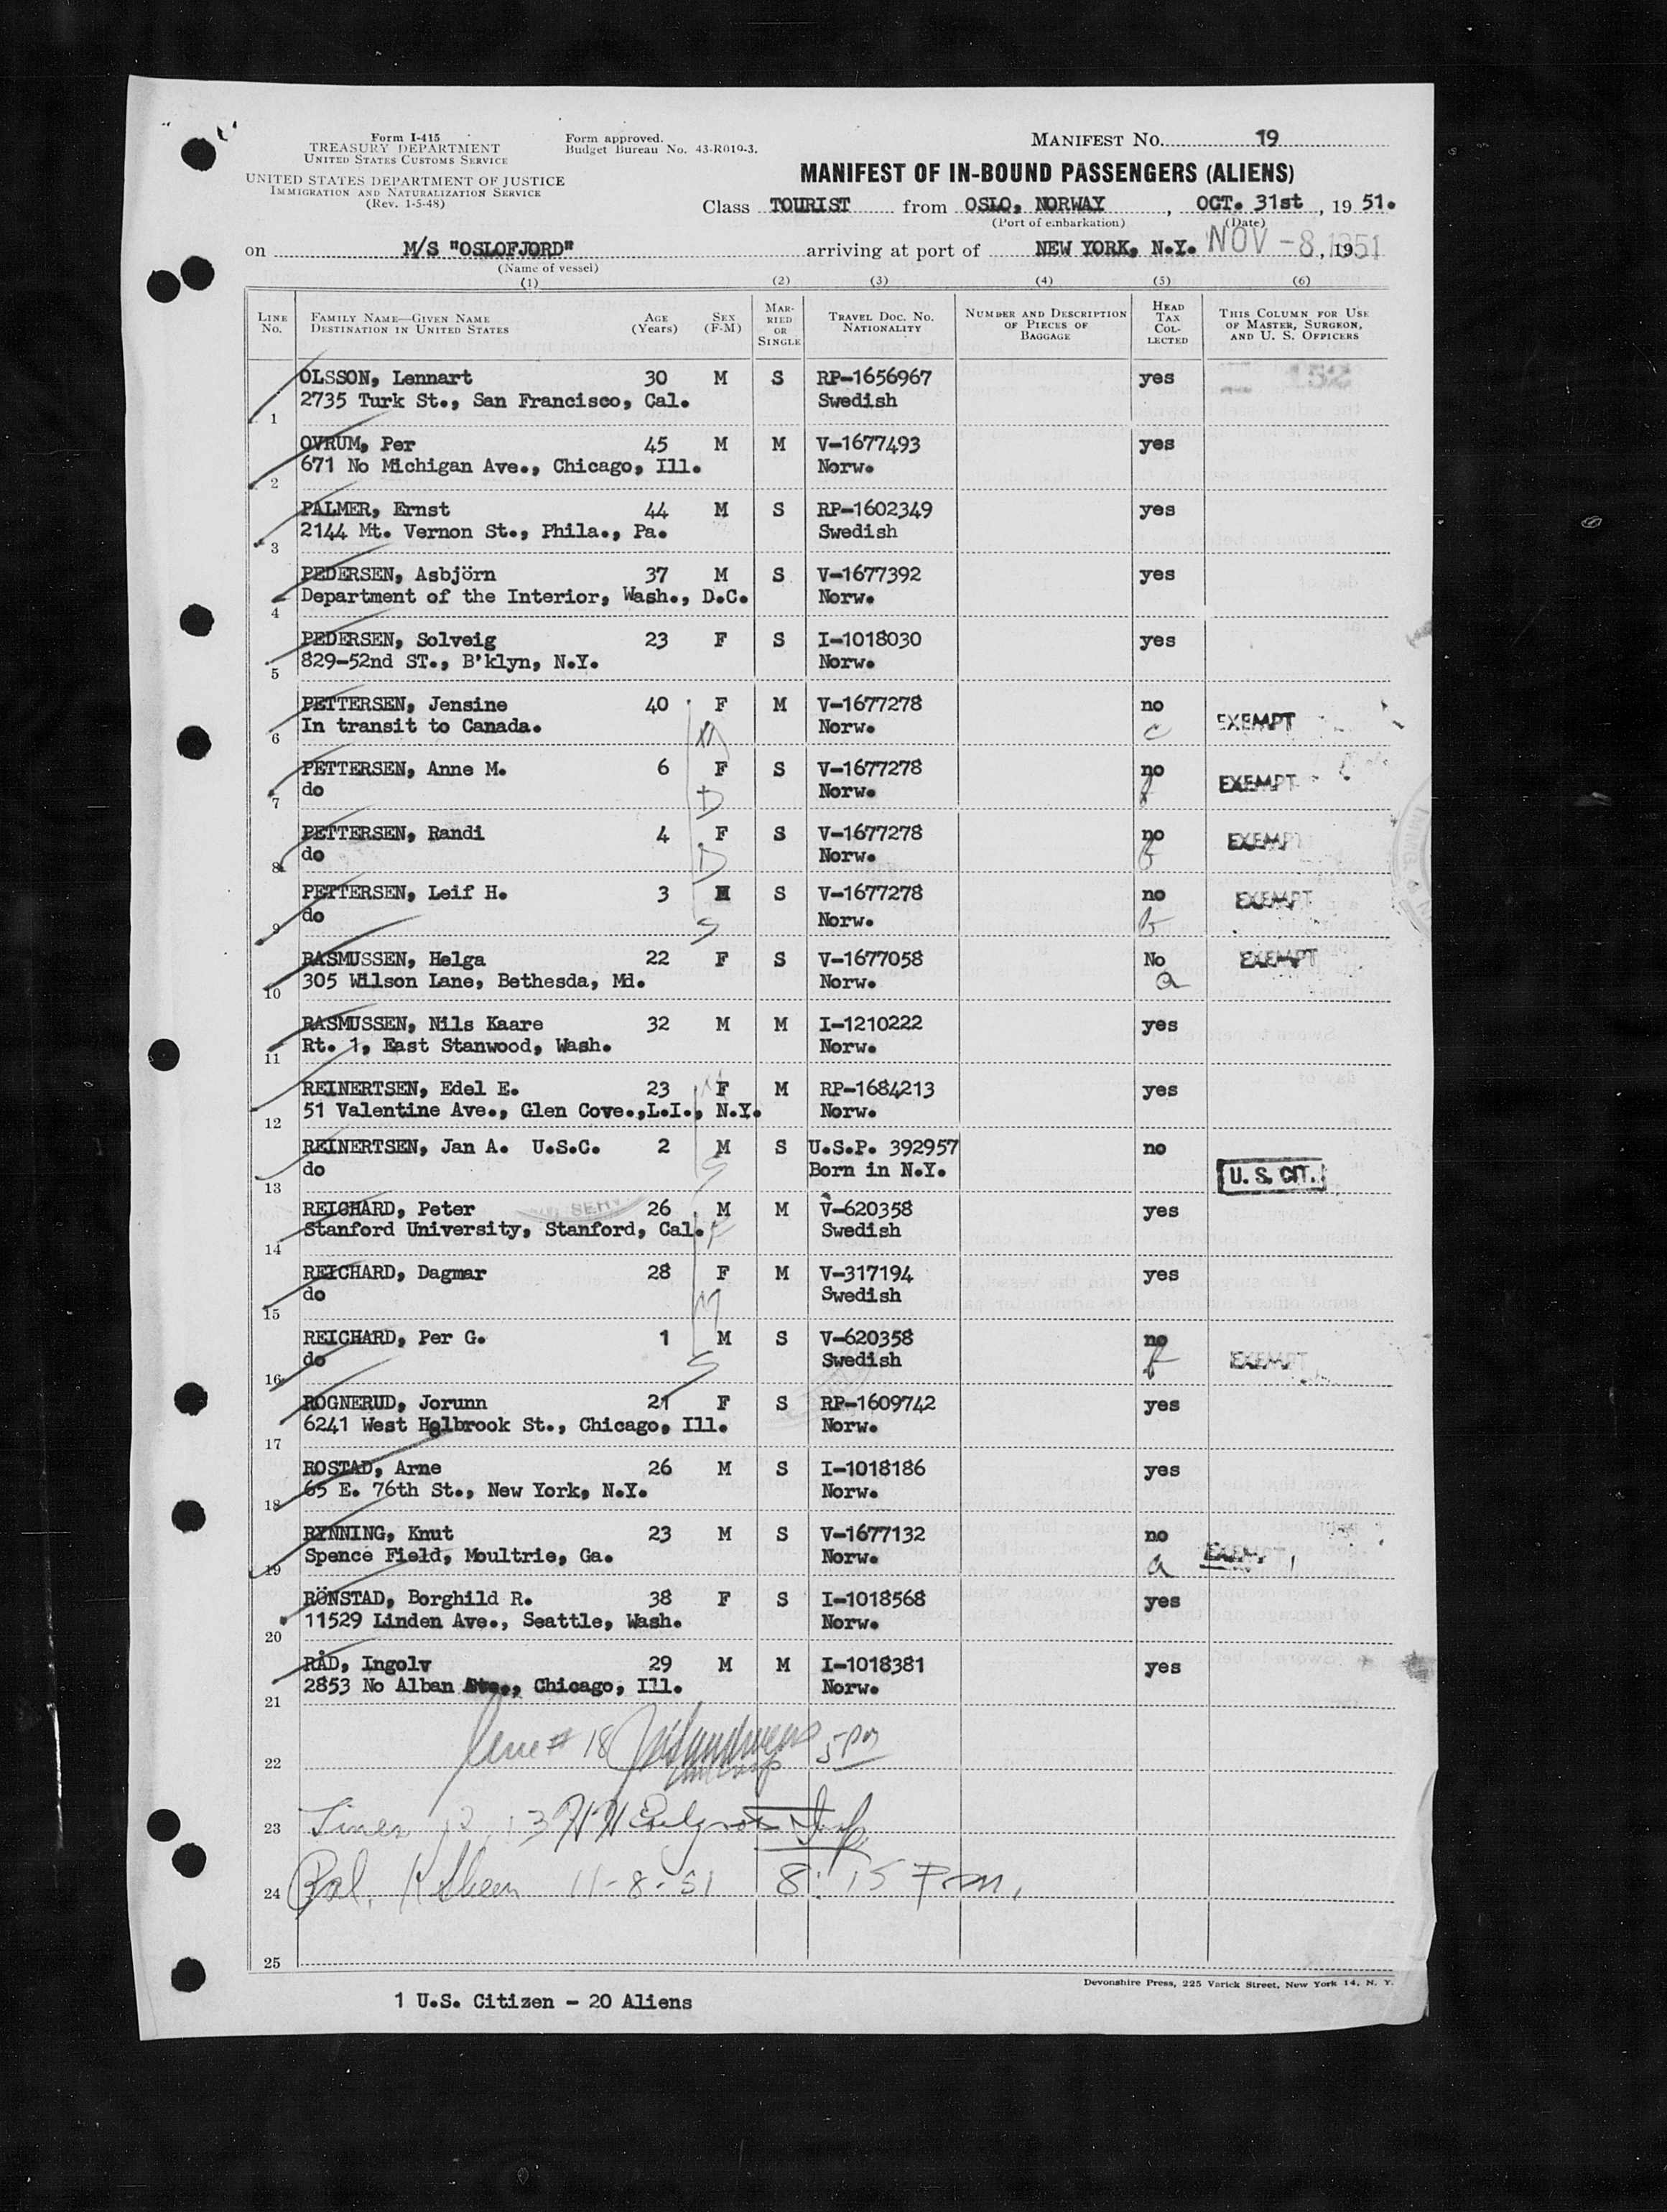 Form I-415
TREASURY DEPARTMENT
UNITED STATES CUSTOMS SERVICE
UNITED STATES DEPARTMENT OF JUSTICE
IMMIGRATION AND NATURALIZATION SERVICE
(Rev. 1-5-48)
Form approved.
Budget Bureau No. 43-R019-3.
MANIFEST No. 19
MANIFEST OF IN-BOUND PASSENGERS (ALIENS)
Class TOURIST from OSLO, NORWAY, OCT. 31st, 19 51.
(Port of embarkation) (Date)
on M/S "OSLOFJORD" arriving at port of NEW YORK, N.Y. NOV -8 1951, 19
(Name of vessel)
(1) (2) (3) (4) (5) (6)
LINE No. FAMILY NAME—GIVEN NAME DESTINATION IN UNITED STATES AGE (Years) SEX (F-M) MARRIED OR SINGLE TRAVEL DOC. No. NATIONALITY NUMBER AND DESCRIPTION OF PIECES OF BAGGAGE HEAD TAX COLLECTED THIS COLUMN FOR USE OF MASTER, SURGEON, AND U. S. OFFICERS
OLSSON, Lennart 30 M S RP-1656967 yes
1 2735 Turk St., San Francisco, Cal. Swedish
OVRUM, Per 45 M M V-1677493 yes
2 671 No Michigan Ave., Chicago, Ill. Norw.
PALMER, Ernst 44 M S RP-1602349 yes
3 2144 Mt. Vernon St., Phila., Pa. Swedish
PEDERSEN, Asbjörn 37 M S V-1677392 yes
4 Department of the Interior, Wash., D.C. Norw.
PEDERSEN, Solveig 23 F S I-1018030 yes
5 829-52nd ST., B'klyn, N.Y. Norw.
PETTERSEN, Jensine 40 F M V-1677278 no EXEMPT
6 In transit to Canada. Norw. c
PETTERSEN, Anne M. 6 F S V-1677278 no EXEMPT
7 do D Norw.
PETTERSEN, Randi 4 F S V-1677278 no EXEMPT
8 do D Norw.
PETTERSEN, Leif H. 3 M S V-1677278 no EXEMPT
9 do S Norw.
RASMUSSEN, Helga 22 F S V-1677058 No EXEMPT
10 305 Wilson Lane, Bethesda, Md. Norw. a
RASMUSSEN, Nils Kaare 32 M M I-1210222 yes
11 Rt. 1, East Stanwood, Wash. Norw.
REINERTSEN, Edel E. 23 F M RP-1684213 yes
12 51 Valentine Ave., Glen Cove.,L.I., N.Y. Norw.
REINERTSEN, Jan A. U.S.C. 2 M S U.S.P. 392957 no
13 do S Born in N.Y. U. S. CIT.
REICHARD, Peter 26 M M V-620358 yes
14 Stanford University, Stanford, Cal. Swedish
REICHARD, Dagmar 28 F M V-317194 yes
15 do M Swedish
REICHARD, Per G. 1 M S V-620358 no EXEMPT
16 do S Swedish
ROGNERUD, Jorunn 21 F S RP-1609742 yes
17 6241 West Holbrook St., Chicago, Ill. Norw.
ROSTAD, Arne 26 M S I-1018186 yes
18 65 E. 76th St., New York, N.Y. Norw.
RYNNING, Knut 23 M S V-1677132 no EXEMPT
19 Spence Field, Moultrie, Ga. Norw. a
RÖNSTAD, Borghild R. 38 F S I-1018568 yes
20 11529 Linden Ave., Seattle, Wash. Norw.
RÅD, Ingolv 29 M M I-1018381 yes
21 2853 No Alban Ave., Chicago, Ill. Norw.
22 Line # 18 5 PM
23 Lines 12, 13 Insp.
24 Bal. 11-8-51 8:15 P.m.
25
Devonshire Press, 225 Varick Street, New York 14, N. Y.
1 U.S. Citizen - 20 Aliens